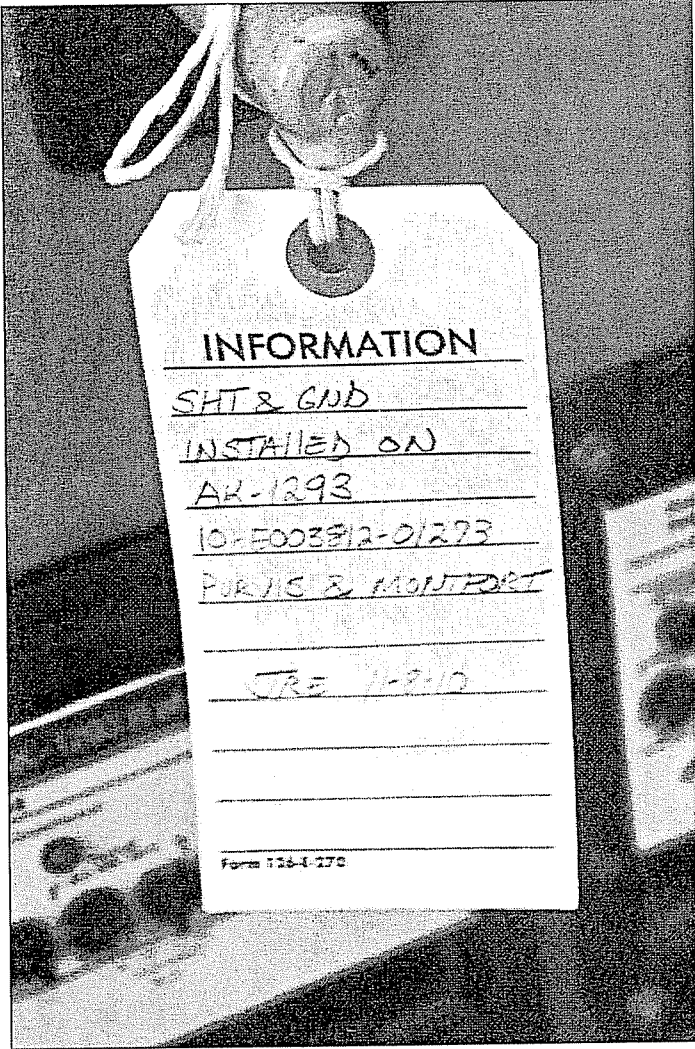 INFORMATION
SHT & GND
INSTALLED ON
AK-1293
10-E003812-01273
PURVIS & MONTFORT
JRE 11-9-10
Form 126-4-270